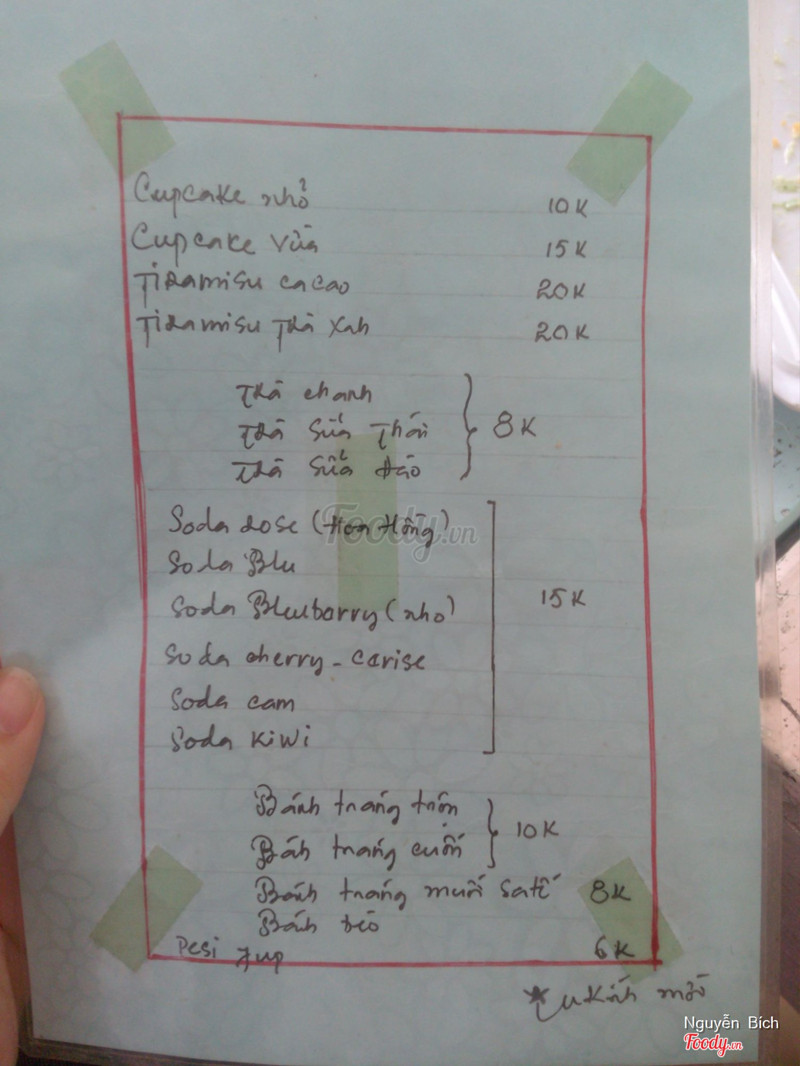 Cupcake nhỏ 10K
Cupcake vừa 15K
Tiramisu cacao 20K
Tiramisu trà xah 20K
Trà chanh
Trà sữa Thái 8K
Trà sữa đào
Soda rose (Hoa Hồng)
Soda Blu
Soda Bluubarry (nho) 15K
Soda cherry - carise
Soda cam
Soda Kiwi
Bánh tráng trộn
Báh tráng cuốn 10K
Bánh tráng muối satế 8K
Bánh bèo
Pesi 7up 6K
Foody.vn
Nguyễn Bích
Foody.vn